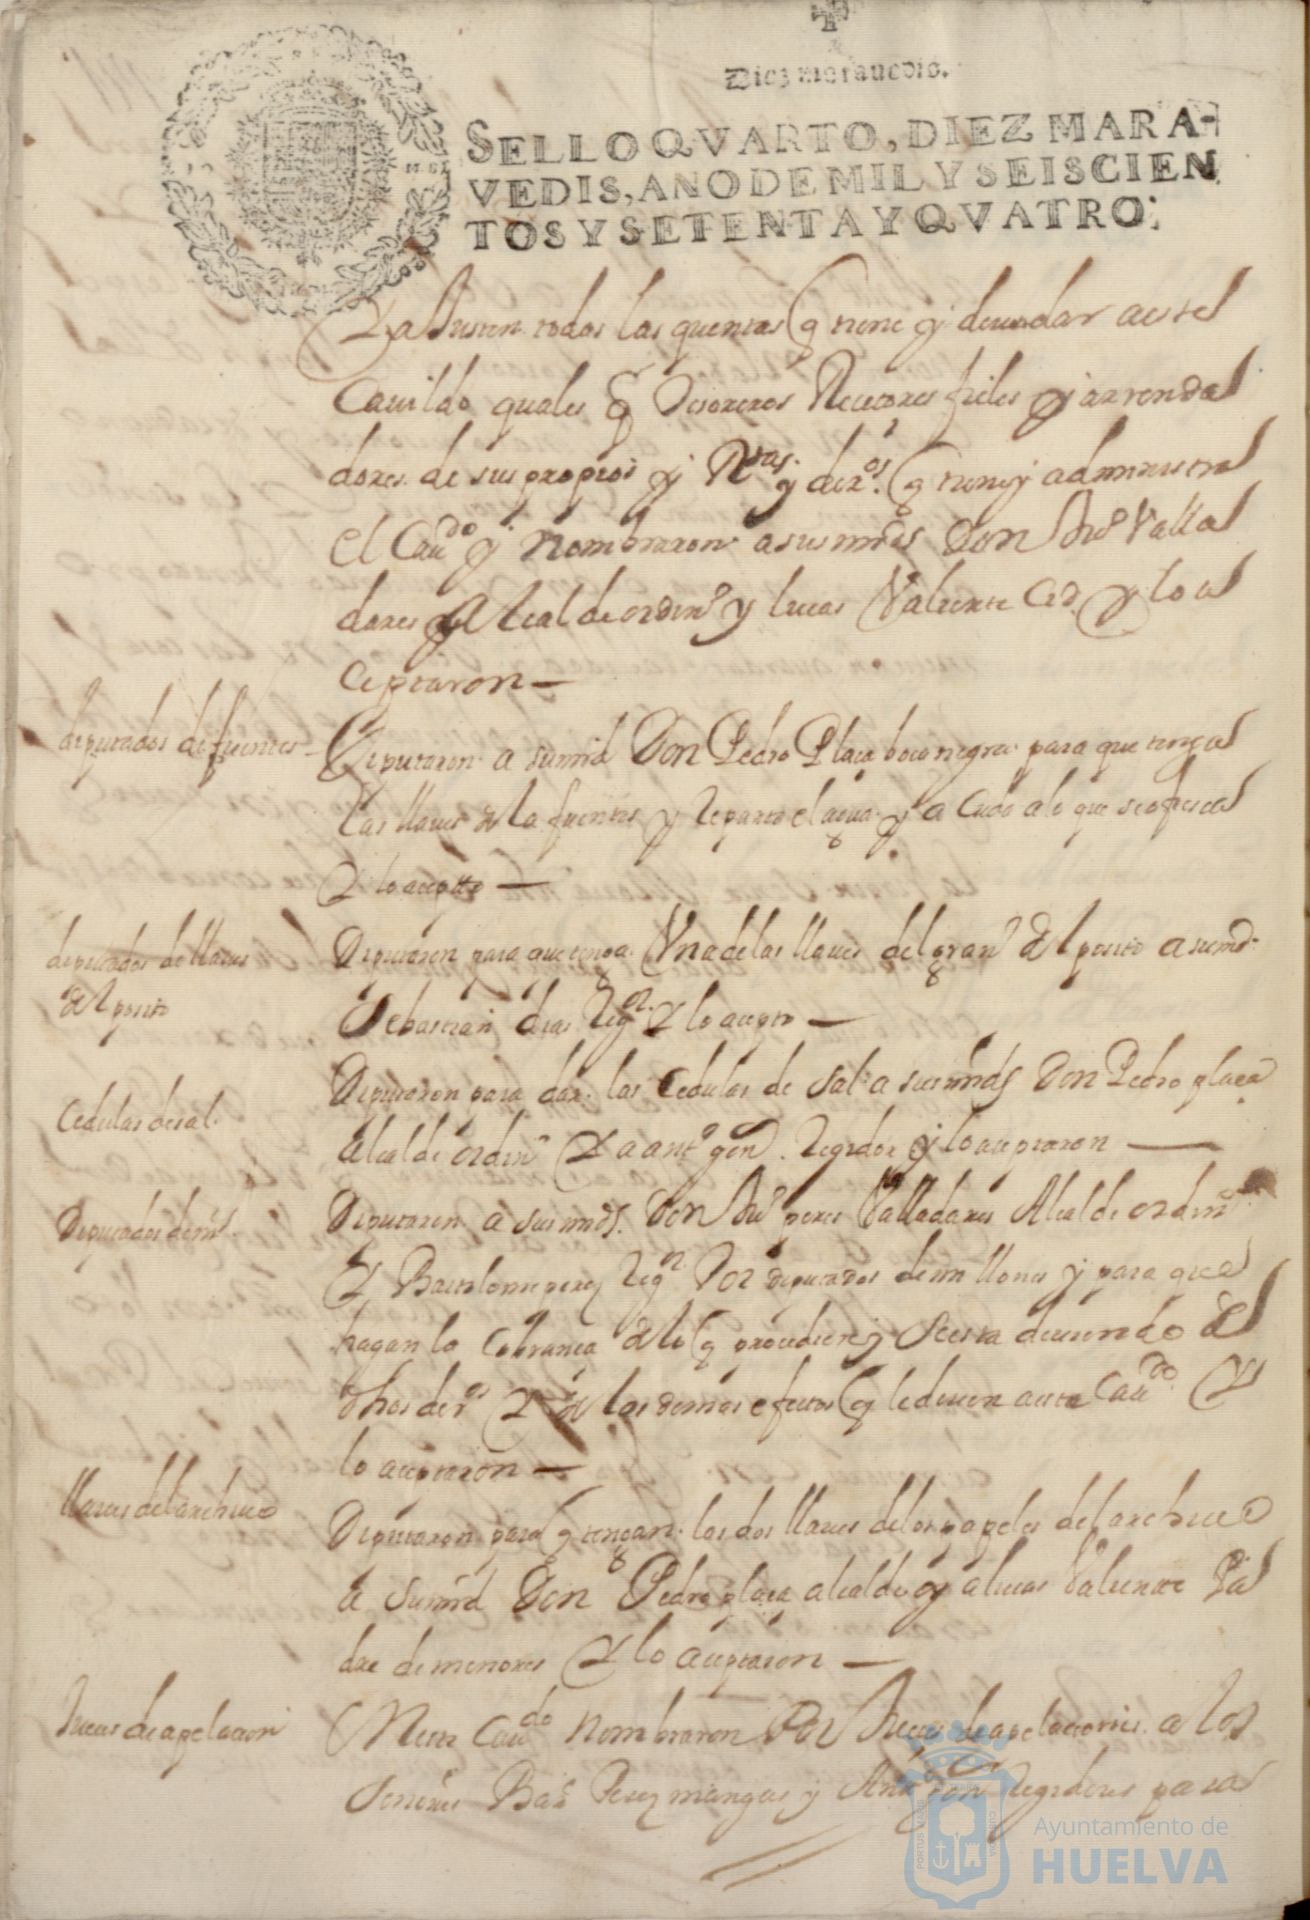 Diez marauedis.
SELLO QVARTO, DIEZ MARA-
VEDIS, AÑO DE MIL Y SEISCIEN
TOS Y SETENTA Y QVATRO:
todas las quentas q tiene y dar
Cauildo quales q tesoreros Recetores fieles y arrenda
dores de sus propios y Rtas. y der.os q tiene y administra
el Cau.do y nombraron a sus mrds Don Juo Valla
dares Alcalde ordin.o y lucas Valiente y lo a
ceptaron —
diputados de fuentes
Diputaron a su mrd Don Pedro Plaça bocanegra para que tenga
las llaues de la fuentes y Reparto el agua y a cuda a lo que se ofresca
Y lo acepto —
diputados de llaues
del posito
Diputaron para que tenga Vna de las llaues del gran.o del posito a su md.
Sebastian dias Reg.or Y lo acepto —
Cedulas de sal.
Diputaron para dar las Cedulas de sal a sus mrds Don Pedro plaça
alcalde ordin.o Y a ant.o gon Regidor y lo aceptaron —
Diputados de
Diputaron a sus mds. Don Juo peres Valladares Alcalde ordin.o
Y Bartolome perez Reg.or Por diputados de millones y para que
hagan la cobrança de lo q y se esta deuiendo de
dhos der.os Y de los demas efectos q le deuen a este Cau.do Y
lo aceptaron —
llaues del archiuo
Diputaron para q tengan las dos llaues de los papeles del archiuo
a su mrd Don Pedro plaça alcalde y a lucas Valiente Pa
dre de menores Y lo aceptaron —
Jueces de apelacion
En este Cau.do nombraron Por Jueces de apelaciones a los
Señores Bar.e Perez mangas y Ant.o gon Regidores para
Ayuntamiento de
HUELVA